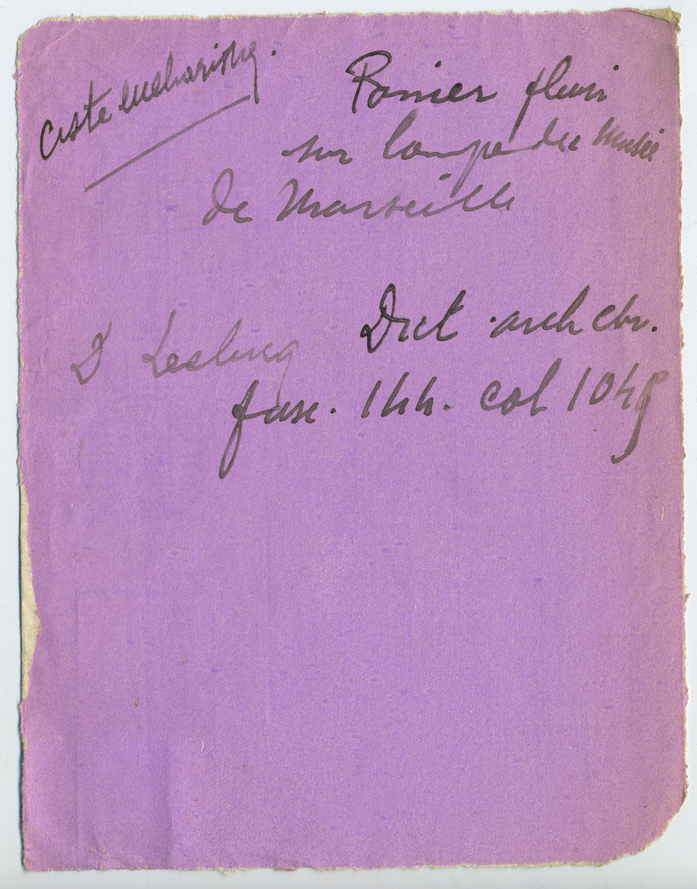 ciste eucharistiq.
Panier fleuri
sur lampe du Musée
de Marseille
D Leclercq Dict. arch chr.
fasc. 144. col 1048